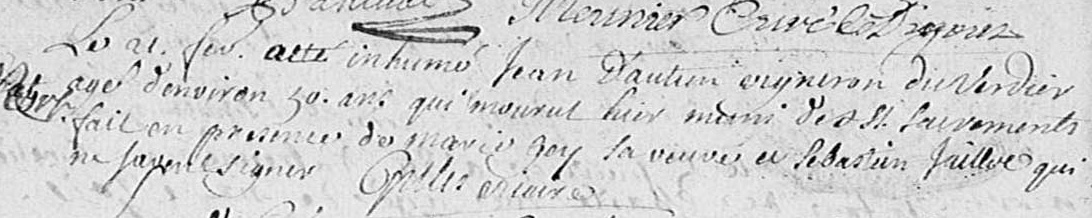 Meunier Curé de Digoin
Le 21. fev. a eté inhumé Jean Dautun vigneron du Verdier
agé d'environ 50. ans qui mourut hier muni des St. Sacrements
fait en presence de marie Gey sa veuve et Sebastien Jaillot qui
ne savent signer vicaire